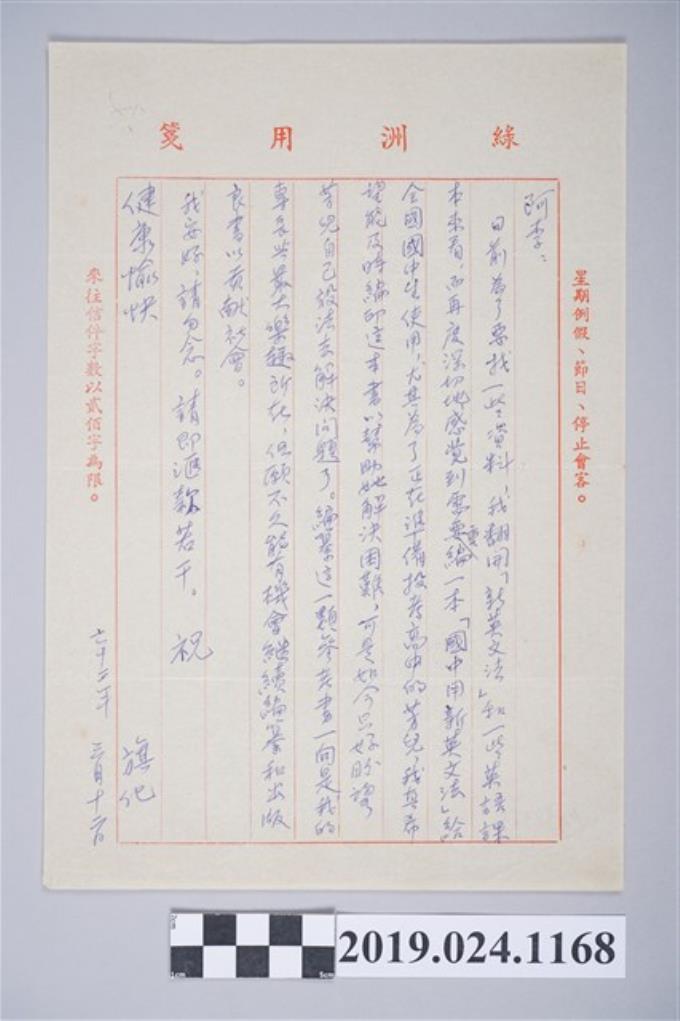 綠洲用箋
星期例假、節日、停止會客。
阿李：
日前為了要找一些資料，我翻開「新英文法」和一些英語課
本來看，而再度深切地感覺到需要編一本「國中用新英文法」給
全國國中生使用，尤其為了正在準備投考高中的芳兒，我真希
望能及時編印這本書以幫助她解決困難，可是如今只好盼望
芳兒自己設法去解決問題了。編纂這一類參考書一向是我的
專長與最大樂趣所在，但願不久能有機會繼續編纂和出版
良書以貢獻社會。
我安好，請勿念。請即滙款若干。祝
健康愉快
旗化
七十二年 三月十二日
來往信件字數以貳佰字為限。
2019.024.1168